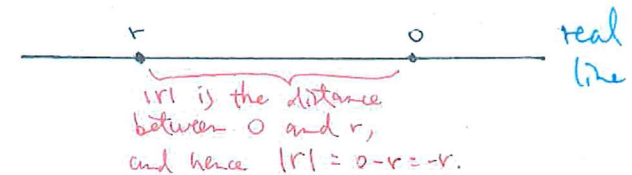 r 0 real
line
|r| is the distance
between 0 and r,
and hence |r| = 0-r = -r.